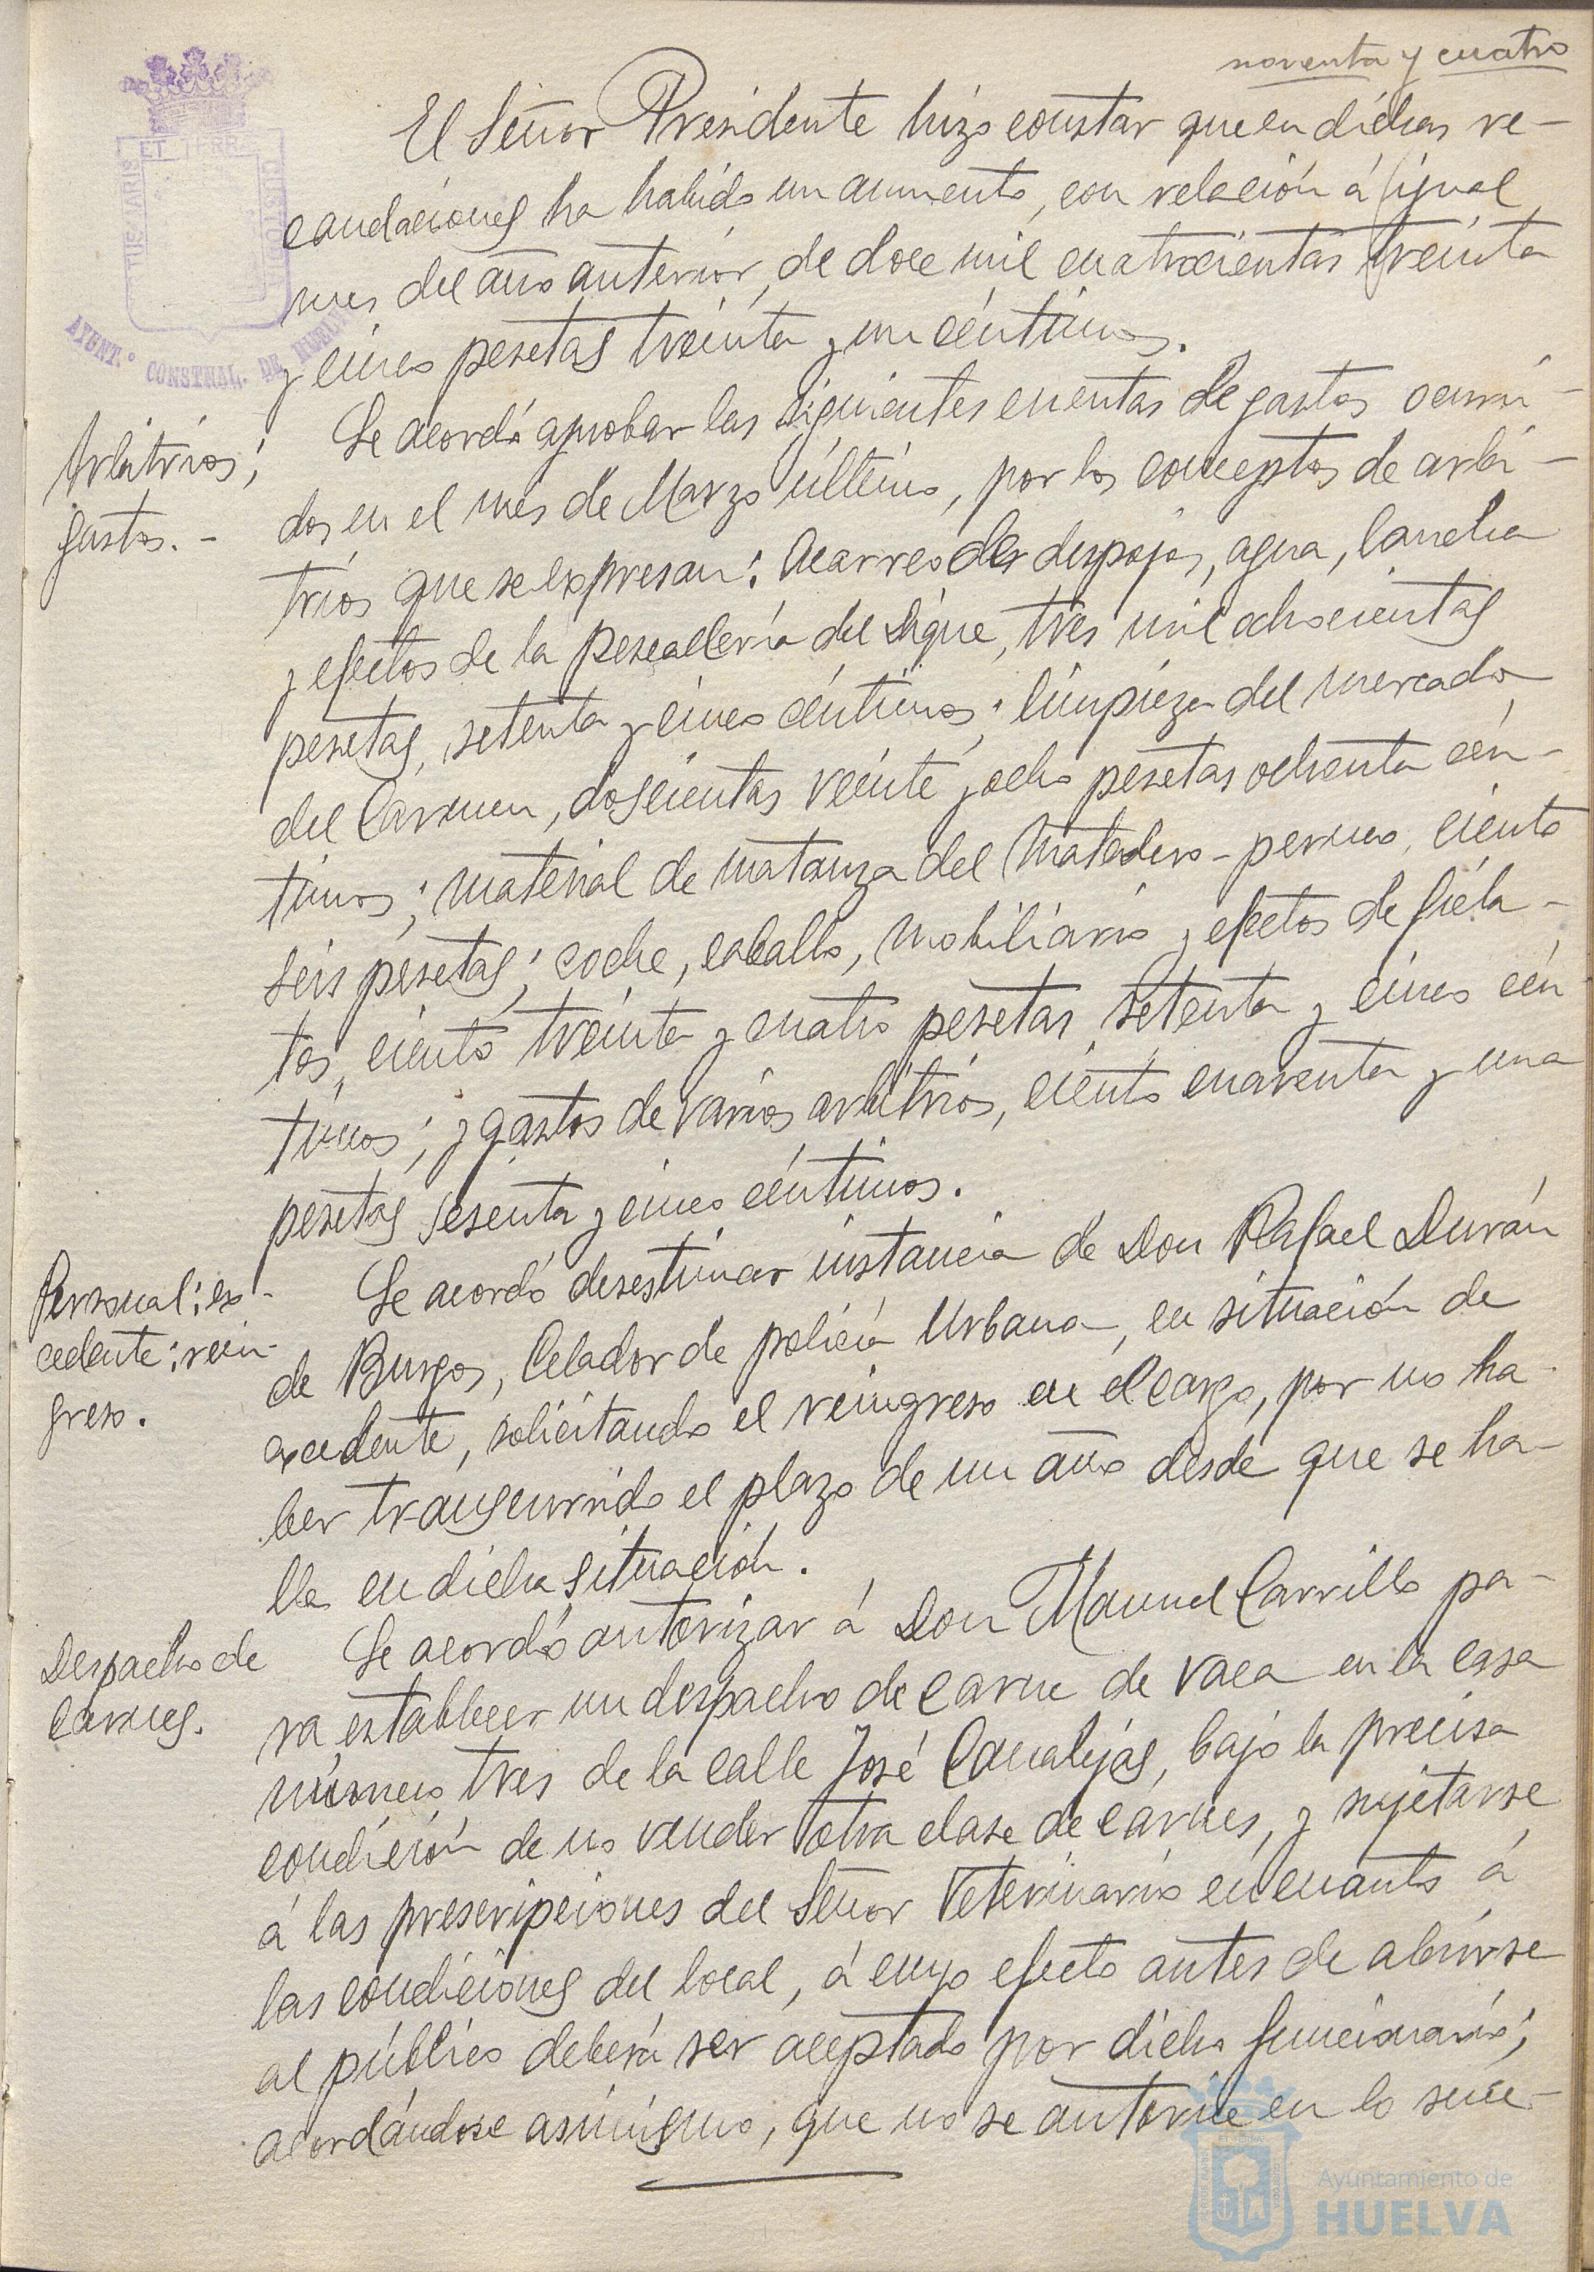 noventa y cuatro
El Señor Presidente hizo constar que en dichas re-
caudaciones ha habido un aumento, con relación á igual
mes del año anterior, de doce mil cuatrocientas treinta
y cinco pesetas treinta y un céntimos.
Arbitrios;
gastos.-
Se acordó aprobar las siguientes cuentas de gastos ocurri-
dos en el mes de Marzo último, por los conceptos de arbi-
trios que se expresan: Acarreo de despojos, agua, lancha
y efectos de la pescadería del Dique, tres mil ochocientas
pesetas, setenta y cinco céntimos; limpieza del mercado
del Carmen, doscientas veinte y ocho pesetas ochenta cén-
timos; material de matanza del Matadero-perneo, ciento
seis pesetas; coche, caballo, mobiliario y efectos de fiela-
tos, ciento treinta y cuatro pesetas, setenta y cinco cén
timos; y gastos de varios arbitrios, ciento cuarenta y una
pesetas sesenta y cinco céntimos.
Personal; ex-
cedente; rein-
greso.
Se acordó desestimar instancia de Don Rafael Durán
de Burgos, Celador de policía Urbana, en situación de
excedente, solicitando el reingreso en el cargo, por no ha-
ber transcurrido el plazo de un año desde que se ha-
lla en dicha situación.
Despacho de
carnes.
Se acordó autorizar á Don Manuel Carrillo pa-
ra establecer un despacho de carne de vaca en la casa
número tres de la calle José Canalejas, bajo la precisa
condición de no vender otra clase de carnes, y sujetarse
á las prescripciones del Señor Veterinario en cuanto á
las condiciones del local, á cuyo efecto antes de abrirse
al público deberá ser aceptado por dicho funcionario;
acordándose asimismo, que no se autorice en lo suce-
ET TERR
CUSTODIA
AYUNT.º CONSTNAL. DE HUELVA
Ayuntamiento de
HUELVA